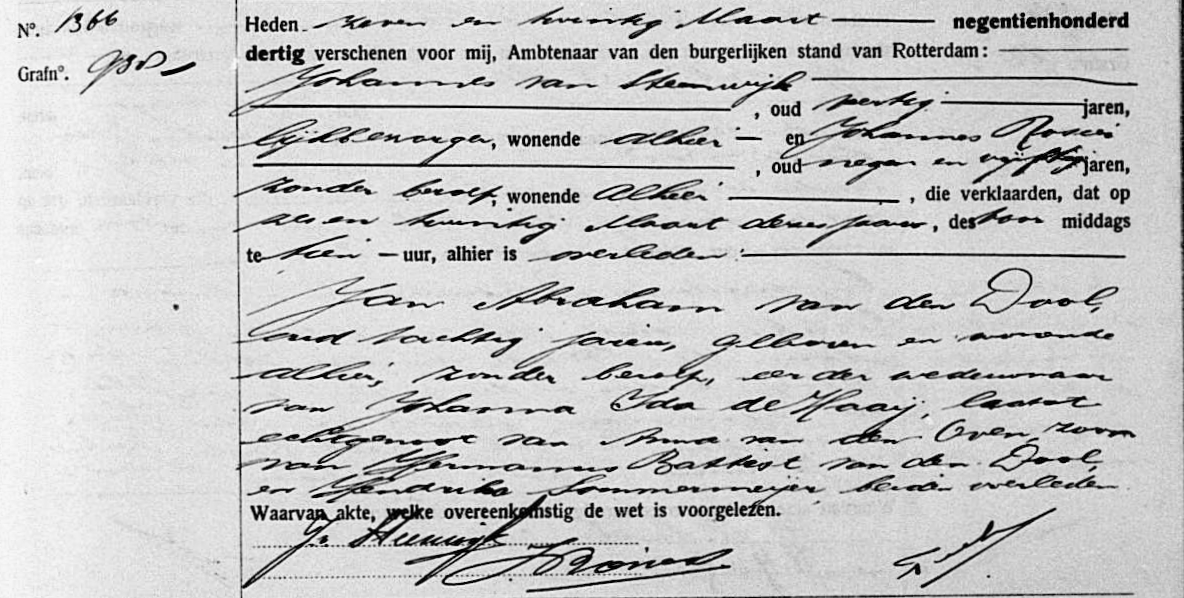 N°. 1366
Grafn°.
Heden zeven en twintig Maart negentienhonderd
dertig verschenen voor mij, Ambtenaar van den burgerlijken stand van Rotterdam:
Johannes van Steenwijk
, oud veertig jaren,
lijkbezorger, wonende alhier en Johannes
, oud negen en vijftig jaren,
zonder beroep, wonende alhier , die verklaarden, dat op
zes en twintig Maart dezes jaars, des voor middags
te tien uur, alhier is overleden:
Jan Abraham van den Dool,
oud tachtig jaren, geboren en wonende
alhier, zonder beroep, eerder weduwnaar
van Johanna Ida de Haaij, laatst
echtgenoot van Anna van den Oven, zoon
van Hermanus Battist van den Dool,
en Hendrika Sommermeijer beiden overleden
Waarvan akte, welke overeenkomstig de wet is voorgelezen.